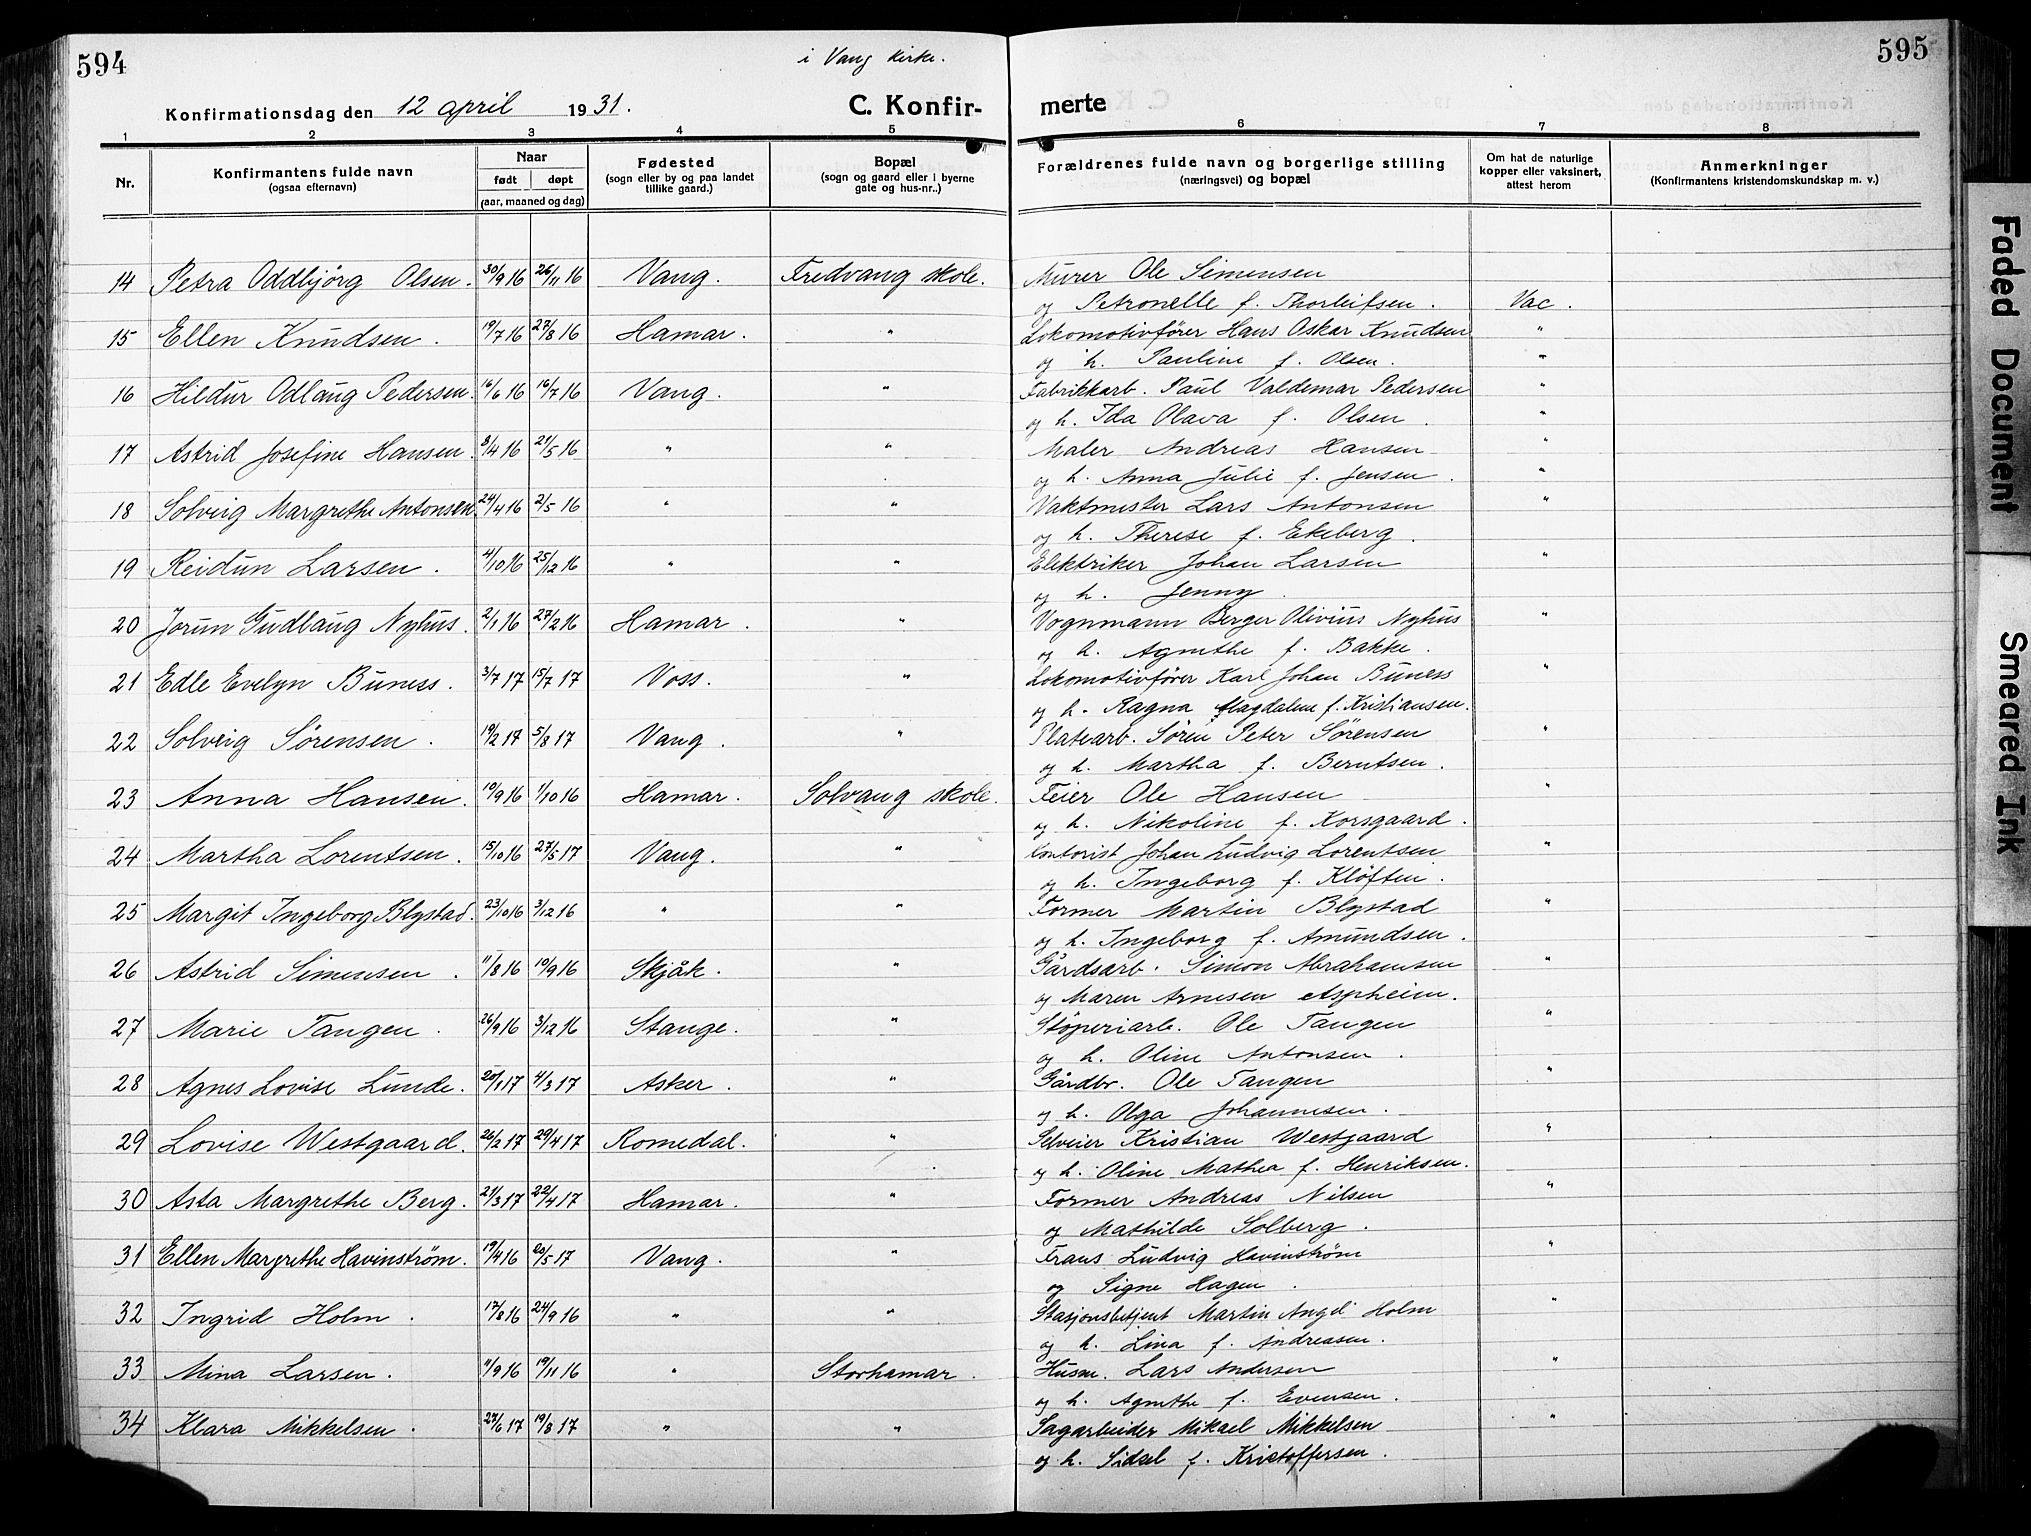 594
i Vang kirke.
Konfirmationsdag den 12 april 1931.
C. Konfir-
1 2 3 4 5
Nr. Konfirmantens fulde navn (ogsaa efternavn) Naar født døpt (aar, maaned og dag) Fødested (sogn eller by og paa landet tillike gaard.) Bopæl (sogn og gaard eller i byerne gate og hus-nr..)
14 Petra Oddbjörg Olsen. 30/9 16 26/11 16 Vang. Fredvang skole.
15 Ellen Knudsen. 19/7 16 27/8 16 Hamar. "
16 Hildur Odlaug Pedersen. 16/6 16 16/7 16 Vang. "
17 Astrid Josefine Hansen. 8/4 16 21/5 16 " "
18 Solveig Margrethe Antonsen 24/4 16 2/5 16 " "
19 Reidun Larsen. 4/10 16 25/12 16 " "
20 Jorun Gudlaug Nyhus. 2/1 16 27/2 16 Hamar. "
21 Edle Evelyn Buness. 3/7 17 15/7 17 Voss. "
22 Solveig Sørensen. 19/2 17 5/8 17 Vang. "
23 Anna Hansen. 19/9 16 1/10 16 Hamar. Solvang skole.
24 Martha Lorentsen. 15/10 16 27/5 17 Vang. "
25 Margit Ingeborg Blystad. 23/10 16 3/12 16 " "
26 Astrid Simensen. 11/8 16 10/9 16 Skjåk. "
27 Marie Tangen. 26/9 16 3/12 16 Stange. "
28 Agnes Lovise Lunde. 20/1 17 4/3 17 Asker. "
29 Lovise Westgaard. 26/2 17 29/4 17 Romedal. "
30 Asta Margrethe Berg. 21/3 17 22/4 17 Hamar. "
31 Ellen Margrethe Havinstrøm. 19/4 16 20/5 17 Vang. "
32 Ingrid Holm. 17/8 16 24/9 16 " "
33 Mina Larsen. 11/9 16 19/11 16 " Storhamar.
34 Klara Mikkelsen. 27/6 17 19/8 17 " "
595
merte
6 7 8
Forældrenes fulde navn og borgerlige stilling (næringsvei) og bopæl Om hat de naturlige kopper eller vaksinert, attest herom Anmerkninger (Konfirmantens kristendomskundskap m. v.)
Murer Ole Simensen
og Petronelle f. Thorleifsen. Vac.
Lokomotivfører Hans Oskar Knudsen "
og h. Pauline f. Olsen. "
Fabrikkarb. Paul Valdemar Pedersen "
og h. Ida Olava f. Olsen. "
Maler Andreas Hansen "
og h. Anna Julie f. Jensen. "
Vaktmester Lars Antonsen "
og h. Therese f. Ekeberg.
Elektriker Johan Larsen "
og h. Jenny.
Vognmann Berger Olivius Nyhus "
og h. Agnethe f. Bakke.
Lokomotivfører Karl Johan Buness "
og h. Ragna Magdalene f. Kristiansen.
Platearb. Søren Peter Sørensen "
og h. Martha f. Berntsen.
Feier Ole Hansen "
og h. Nikoline f. Korsgaard.
Kontorist Johan Ludvig Lorentsen "
og h. Ingeborg f. Kløften.
Former Martin Blystad "
og h. Ingeborg f. Amundsen.
Gårdsarb. Simon Abrahamsen "
og Maren Arnesen Aspheim.
Støperiarb. Ole Tangen "
og h. Oline Antonsen.
Gårdbr. Ole Tangen "
og h. Olga Johannesen.
Selveier Kristian Westgaard "
og h. Oline Mathea f. Henriksen.
Former Andreas Nilsen "
og Mathilde Solberg.
Frans Ludvig Havinstrøm "
og Signe Hagen.
Stasjonsbetjent Martin Angel Holm "
og h. Lina f. Andreasen.
Husm. Lars Andersen "
og h. Agnethe f. Evensen.
Sagarbeider Mikael Mikkelsen "
og h. Sidsel f. Kristoffersen.
Faded Document
Smeared Ink